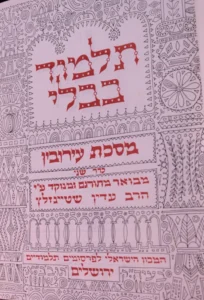 תלמוד
בבלי
מסכת עירובין
כרך שני
מבואר מתורגם ומנוקד ע״י
הרב עדין שטיינזלץ
המכון הישראלי לפרסומים תלמודיים
ירושלים